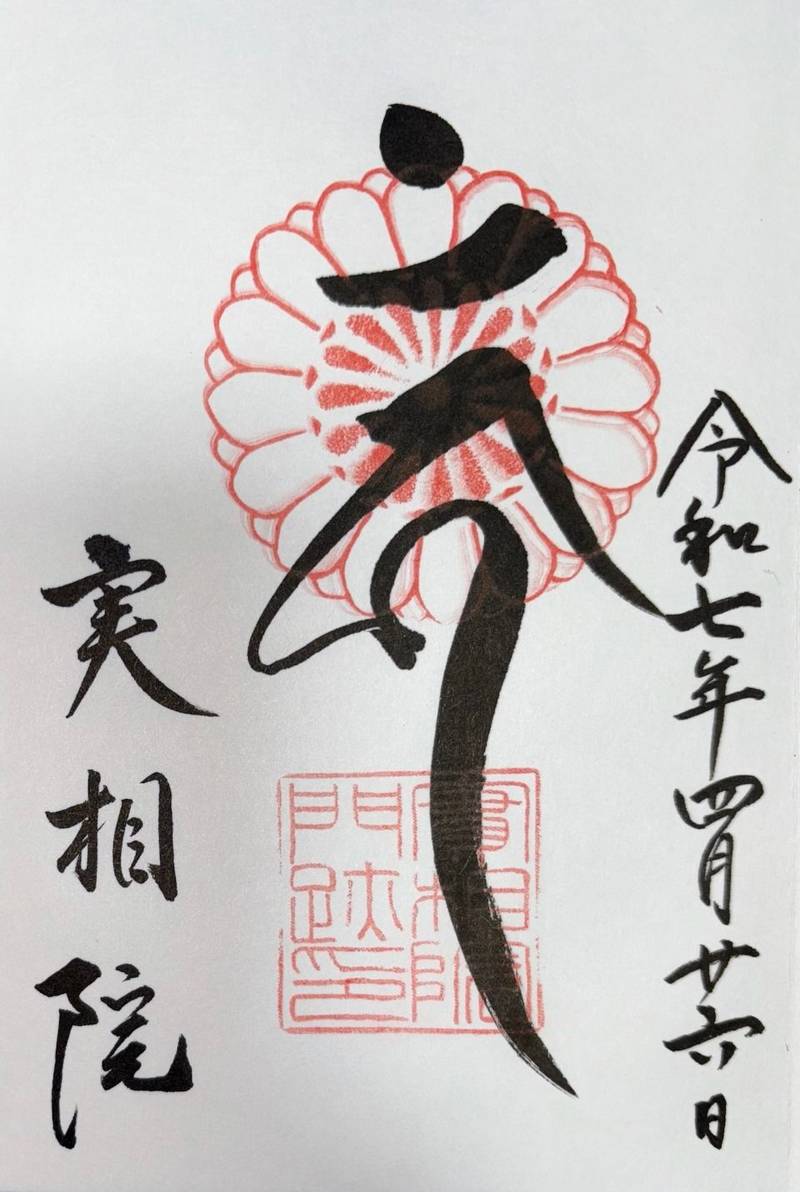 令和七年四月廿六日
實相院
門跡印
実相院